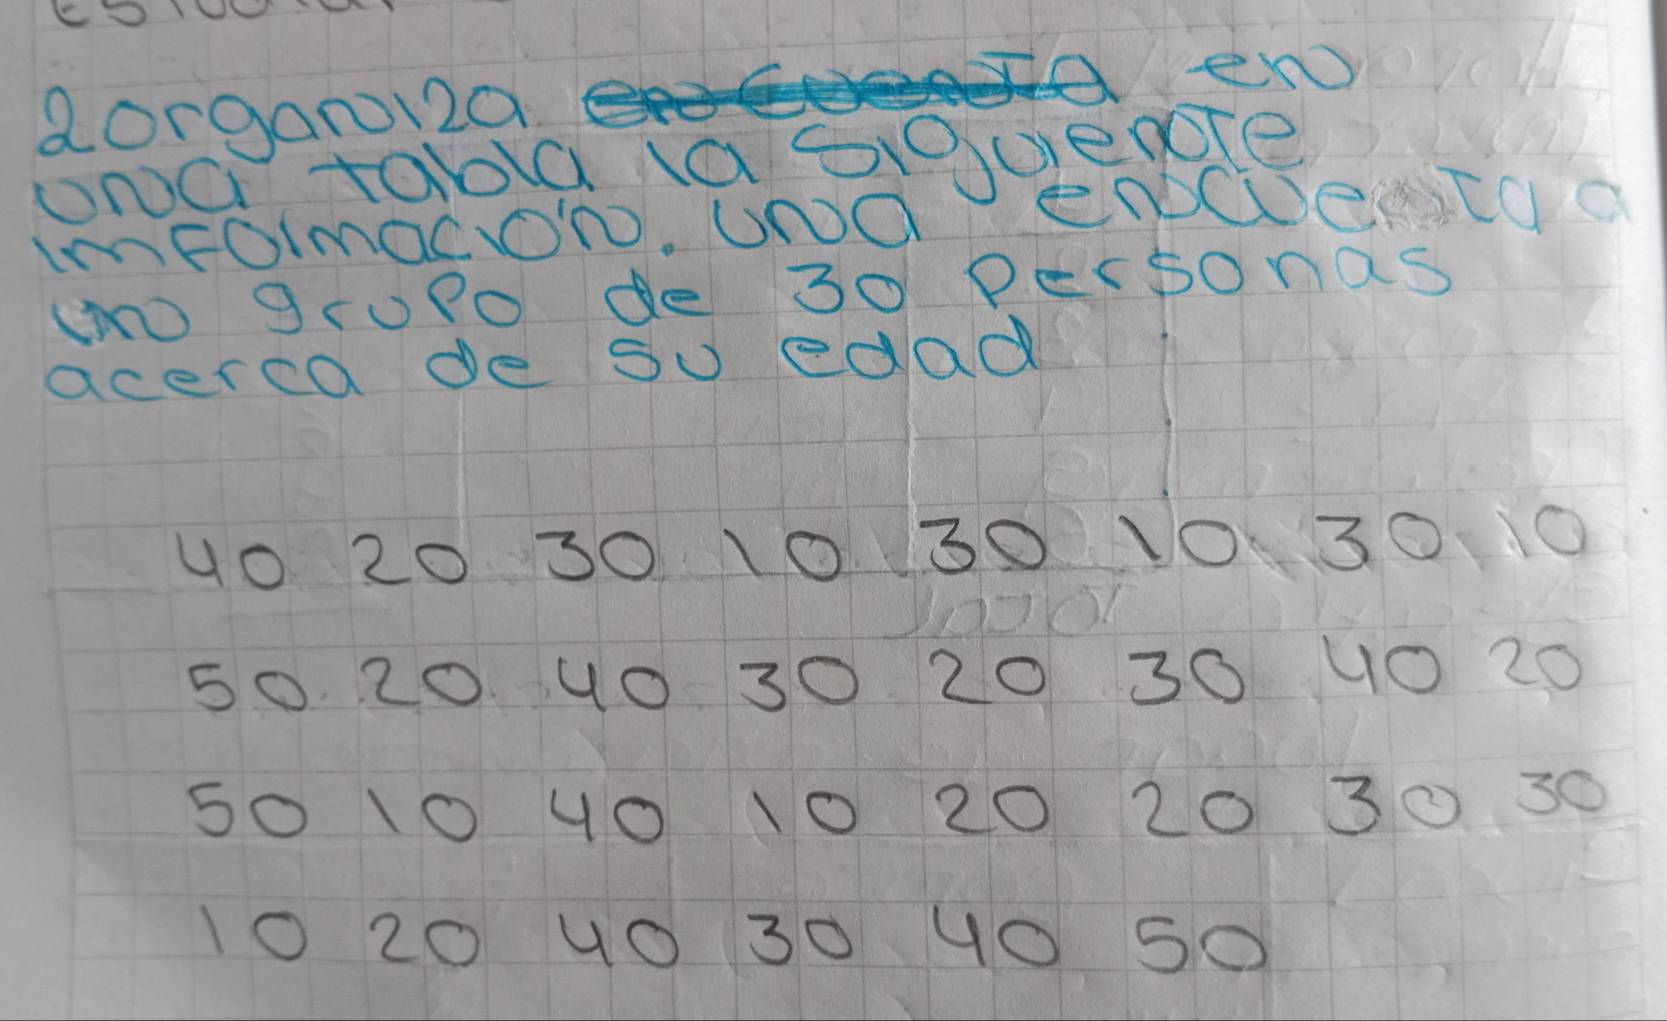 2 organiza en
una tabla la siguiente
imformación. una encuesta a
un grupo de 30 personas
acerca de su edad
40 20 30 10 30 10 30 10
50 20 40 30 20 30 40 20
50 10 40 10 20 20 30 30
10 20 40 30 40 50